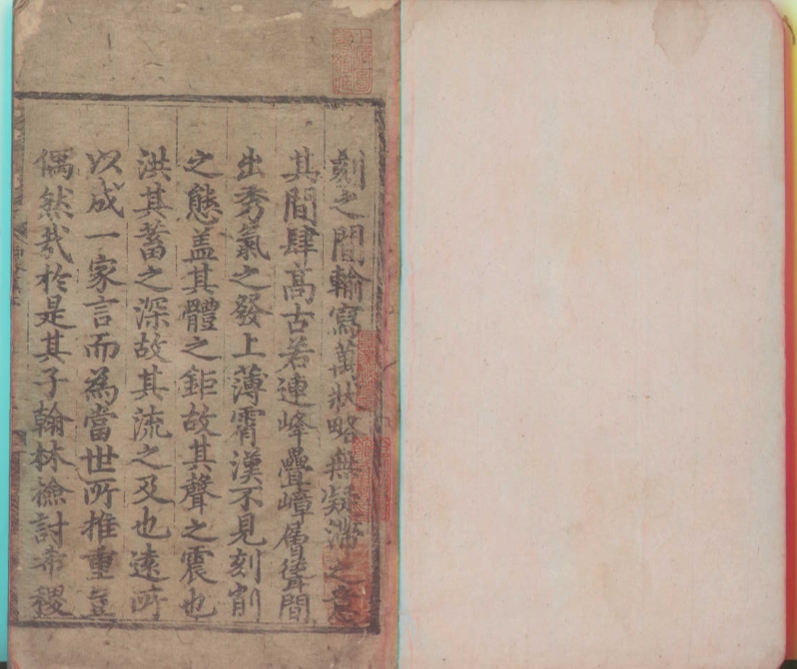 刻之間輸寫萬狀略無凝滯之意
其間肆高古若連峰疊嶂層聳間
出秀氣之發上薄霄漢不見刻削
之態盖其體之鉅故其聲之震也
洪其蓄之深故其流之及也遠所
以成一家言而為當世所推重豈
偶然哉於是其子翰林檢討希稷